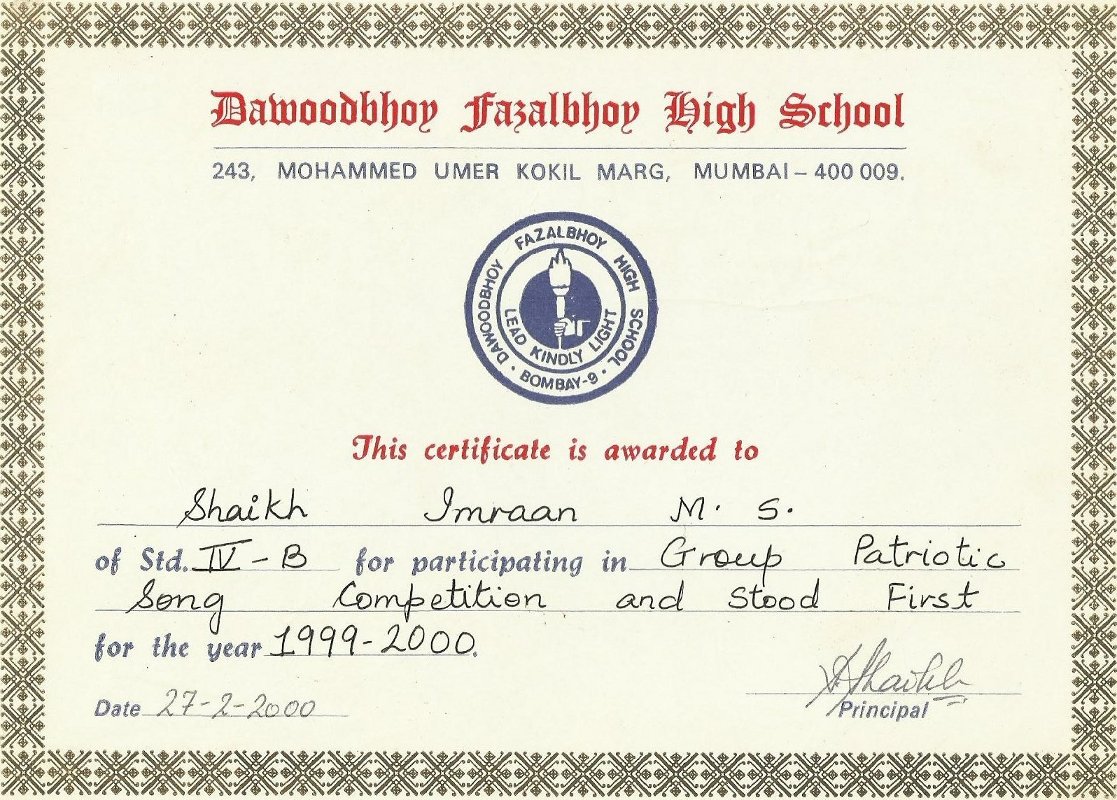 Dawoodbhoy Fazalbhoy High School
243, MOHAMMED UMER KOKIL MARG, MUMBAI – 400 009.
DAWOODBHOY FAZALBHOY HIGH SCHOOL
LEAD KINDLY LIGHT
· BOMBAY-9 ·
This certificate is awarded to
Shaikh Imraan M. S.
of Std. IV - B for participating in Group Patriotic
Song Competition and stood First
for the year 1999-2000.
A. Shaikh
Date 27-2-2000
Principal